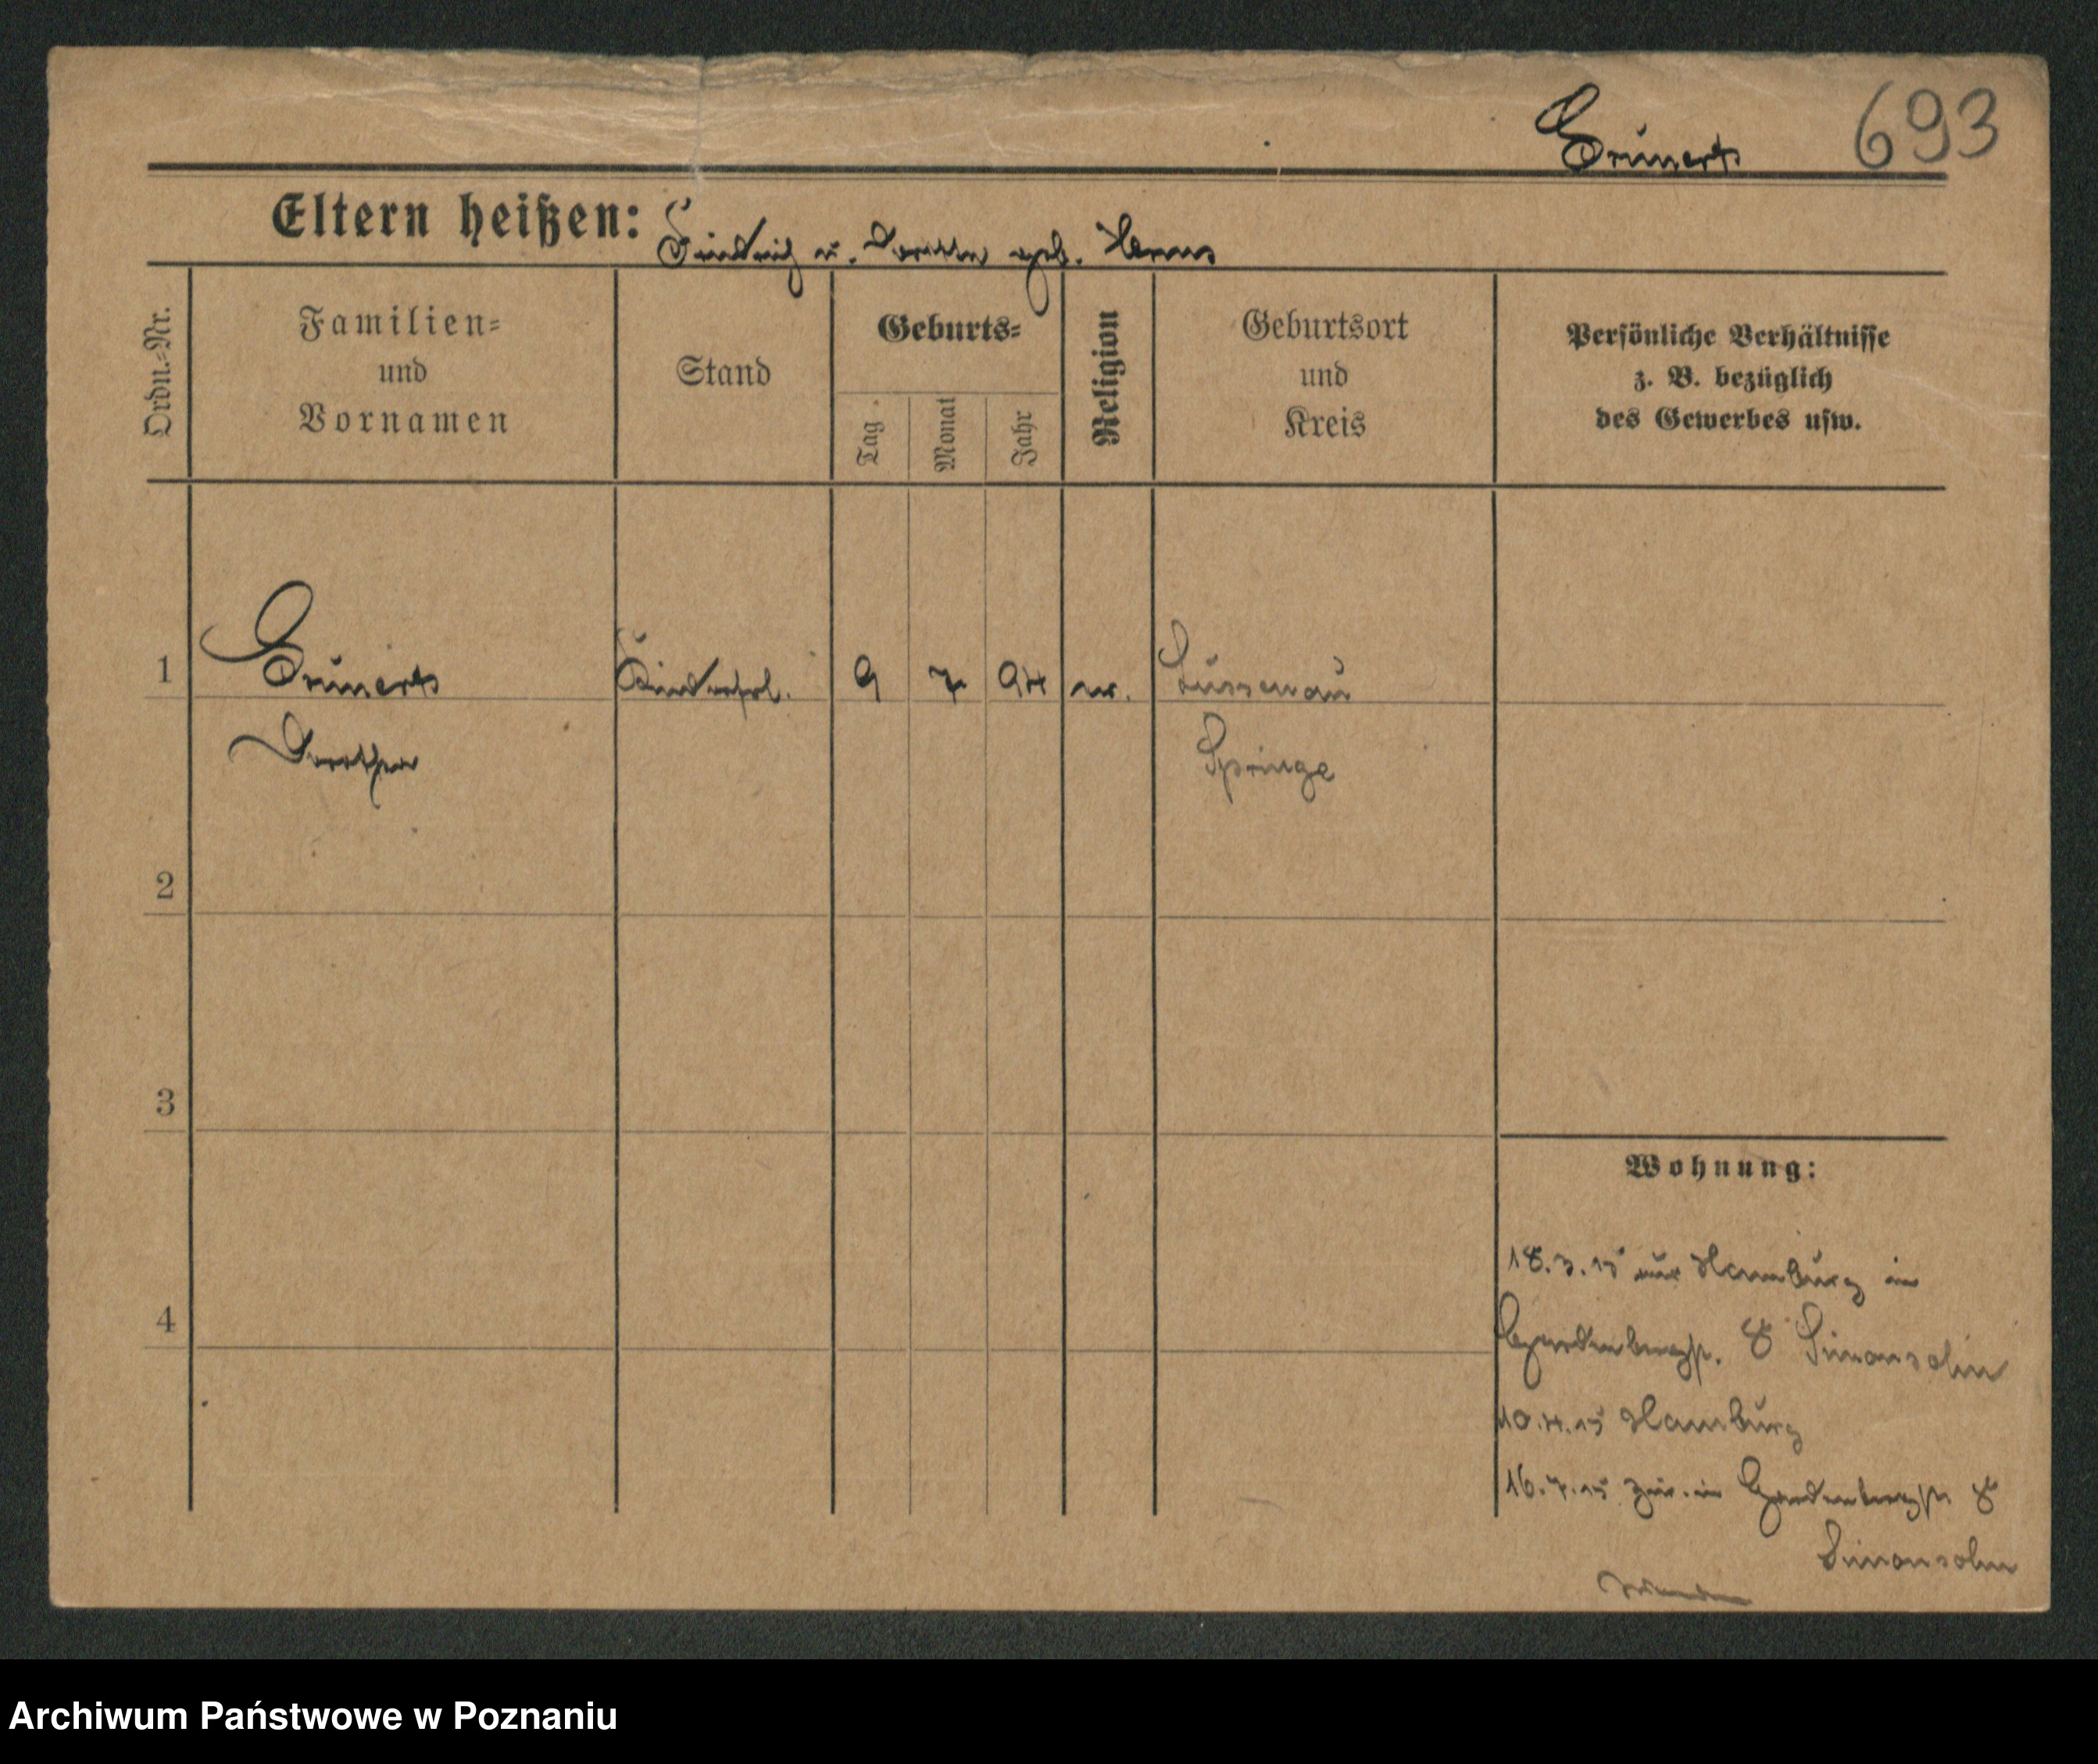 Grünerts 693
Eltern heißen: Friedrich u. Dorothea geb. Harms
Ordn.-Nr.
Familien-
und
Vornamen
Stand
Geburts-
Tag
Monat
Jahr
Religion
Geburtsort
und
Kreis
Persönliche Verhältnisse
z. B. bezüglich
des Gewerbes usw.
1 Grünerts Kinderfrl. 9 7 94 ev.
Dorothea Springe
2
3
Wohnung:
18.3.15 aus Hamburg in
4
Hardenbergstr. 8 Simonsohn
10.4.15 Hamburg
16.7.15 zur. in Hardenbergstr 8
Simonsohn
Archiwum Państwowe w Poznaniu